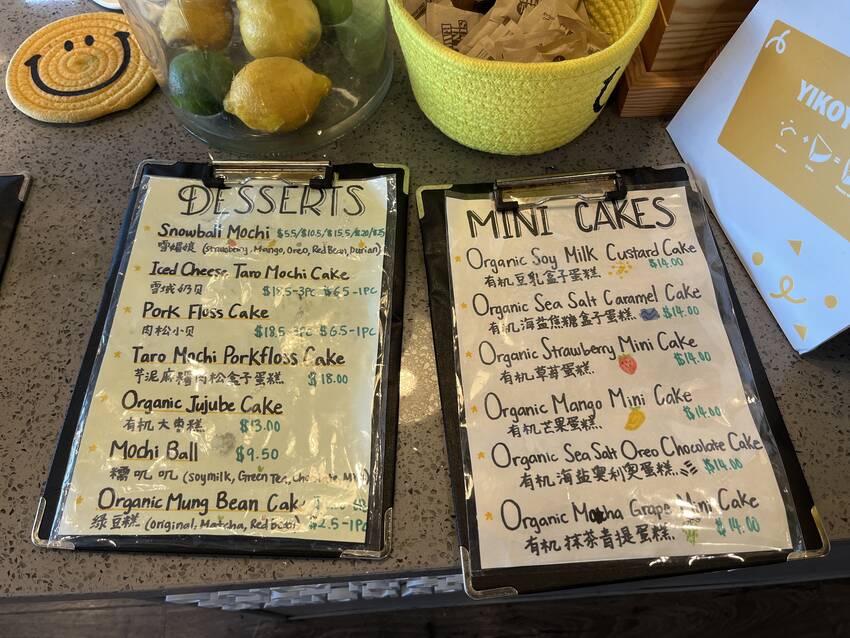 DESSERTS
Snowball Mochi $5.5/$10.5/$15.5/$20/$25
雪媚娘 (strawberry, Mango, Oreo, Red Bean, Durian)
Iced Cheese Taro Mochi Cake
雪域奶贝 $18.5-3PC $6.5-1PC
Pork Floss Cake
肉松小贝 $18.5-3PC $6.5-1PC
Taro Mochi Porkfloss Cake
芋泥麻糬肉松盒子蛋糕 $18.00
Organic Jujube Cake
有机大枣糕 $13.00
Mochi Ball $9.50
糯叽叽 (soymilk, Green Tea, Chocolate
Organic Mung Bean Cak
绿豆糕 (original, Matcha, Red bean) $2.5-1PC
MINI CAKES
Organic Soy Milk Custard Cake
有机豆乳盒子蛋糕 $14.00
Organic Sea Salt Caramel Cake
有机海盐焦糖盒子蛋糕 $14.00
Organic Strawberry Mini Cake
有机草莓蛋糕 $14.00
Organic Mango Mini Cake
有机芒果蛋糕 $14.00
Organic Sea Salt Oreo Chocolate Cake
有机海盐奥利奥蛋糕 $14.00
Organic Matcha Grape Mini Cake
有机抹茶青提蛋糕 $14.00
YIKOY